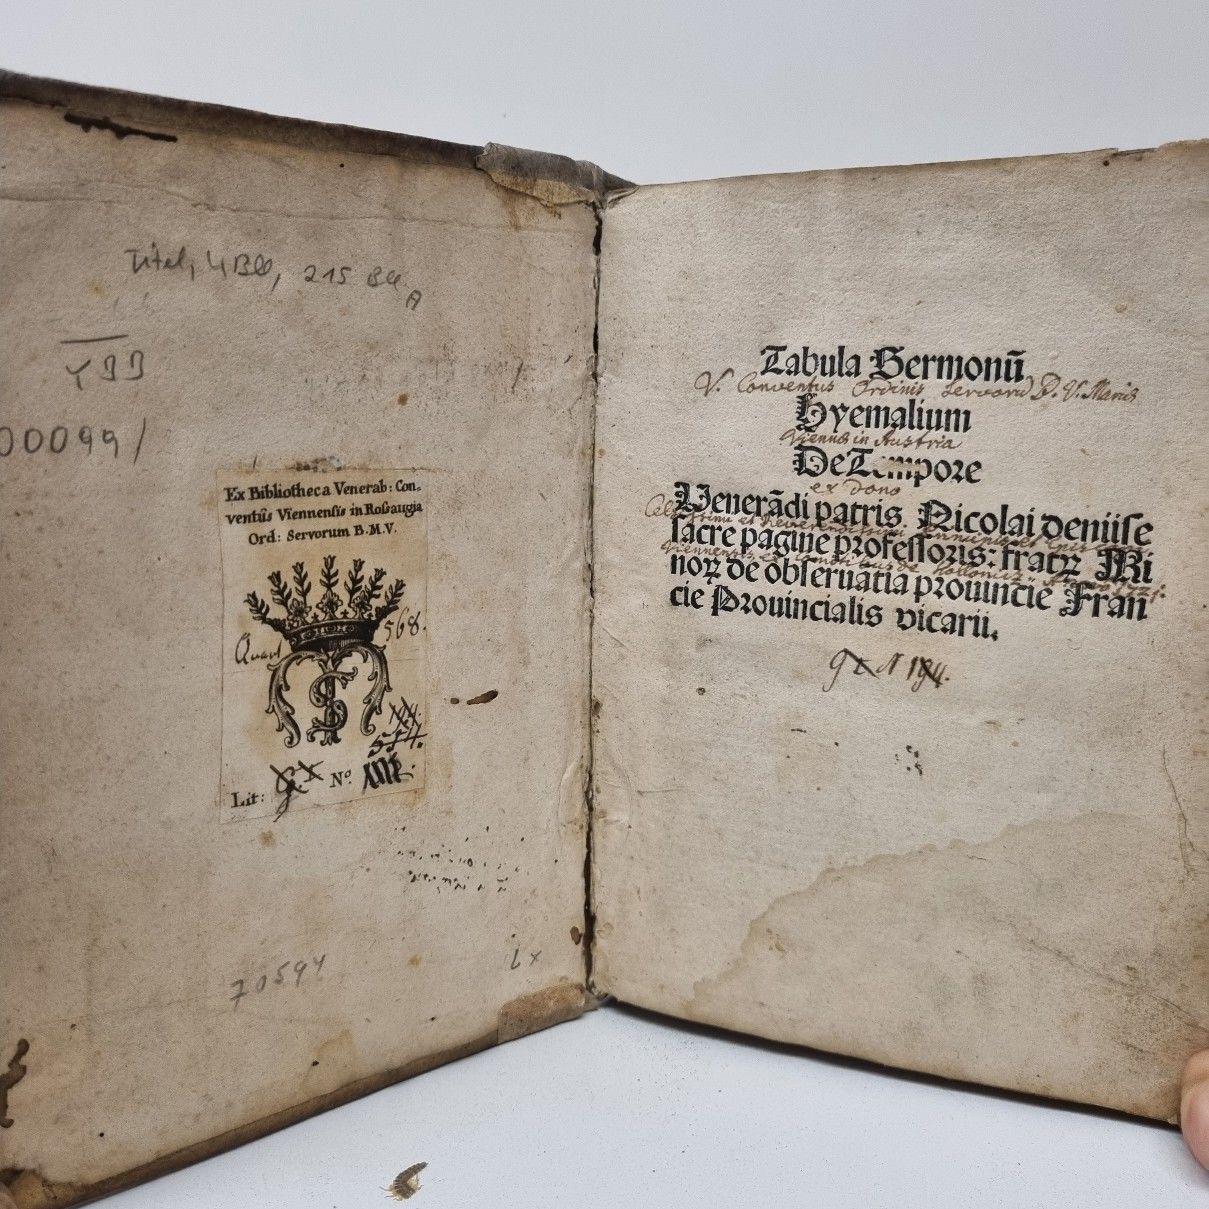 Titel, 4 Bll, 215 Bll
A
00099/
Ex Bibliotheca Venerab: Con-
ventûs Viennensis in Rossaugia
Ord: Servorum B.M.V.
Quart 568.
Lit: N°
70594
Lx
Tabula Sermonū
V. Conventus Ordinis Servorū B. V. Mariæ
Hyemalium
Viennæ in Austria
De Tempore
ex dono
Venerādi patris Nicolai deniise
sacre pagine professoris: fratrꝝ Mi
Viennensis
noꝝ de obseruātia prouincie Fran
cie Prouincialis vicarii.